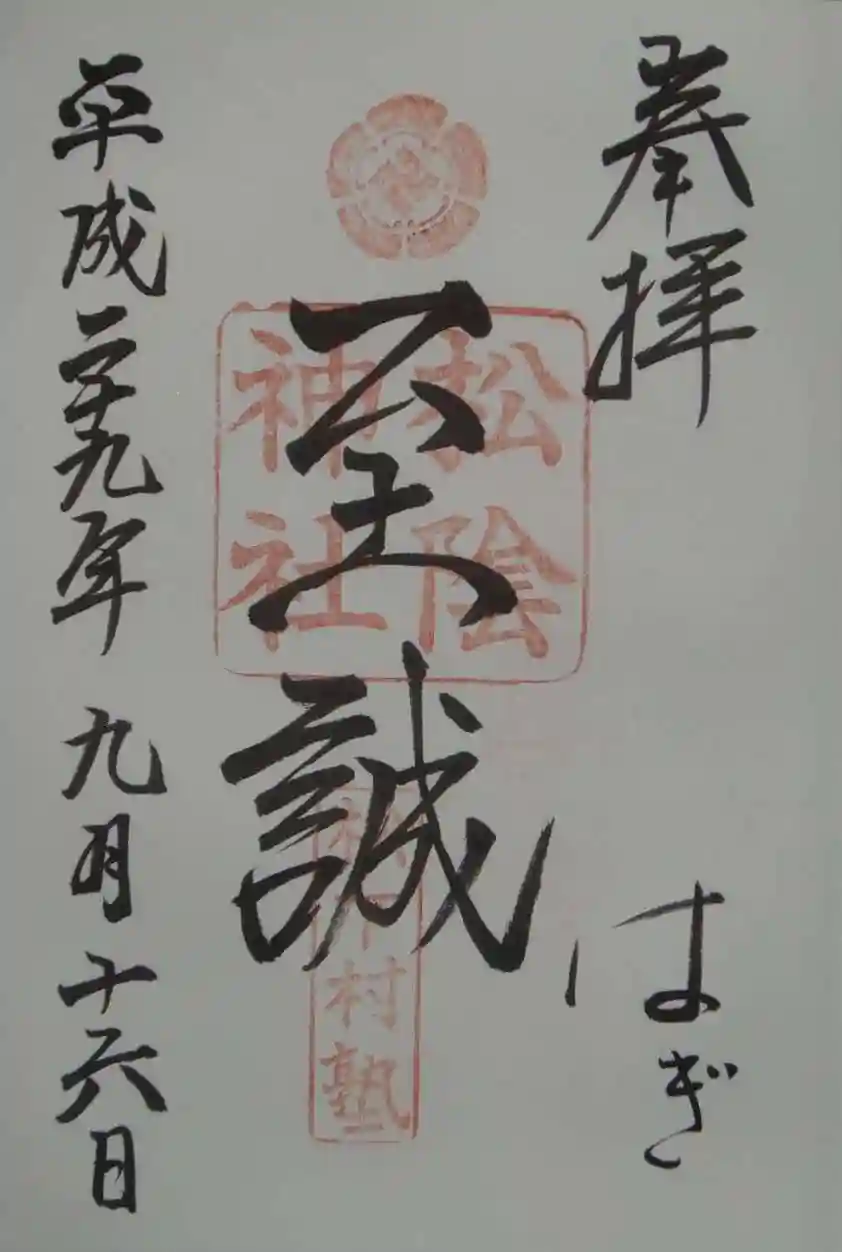 奉拝
はぎ
至誠
松陰
神社
松下村塾
平成二十九年 九月十六日